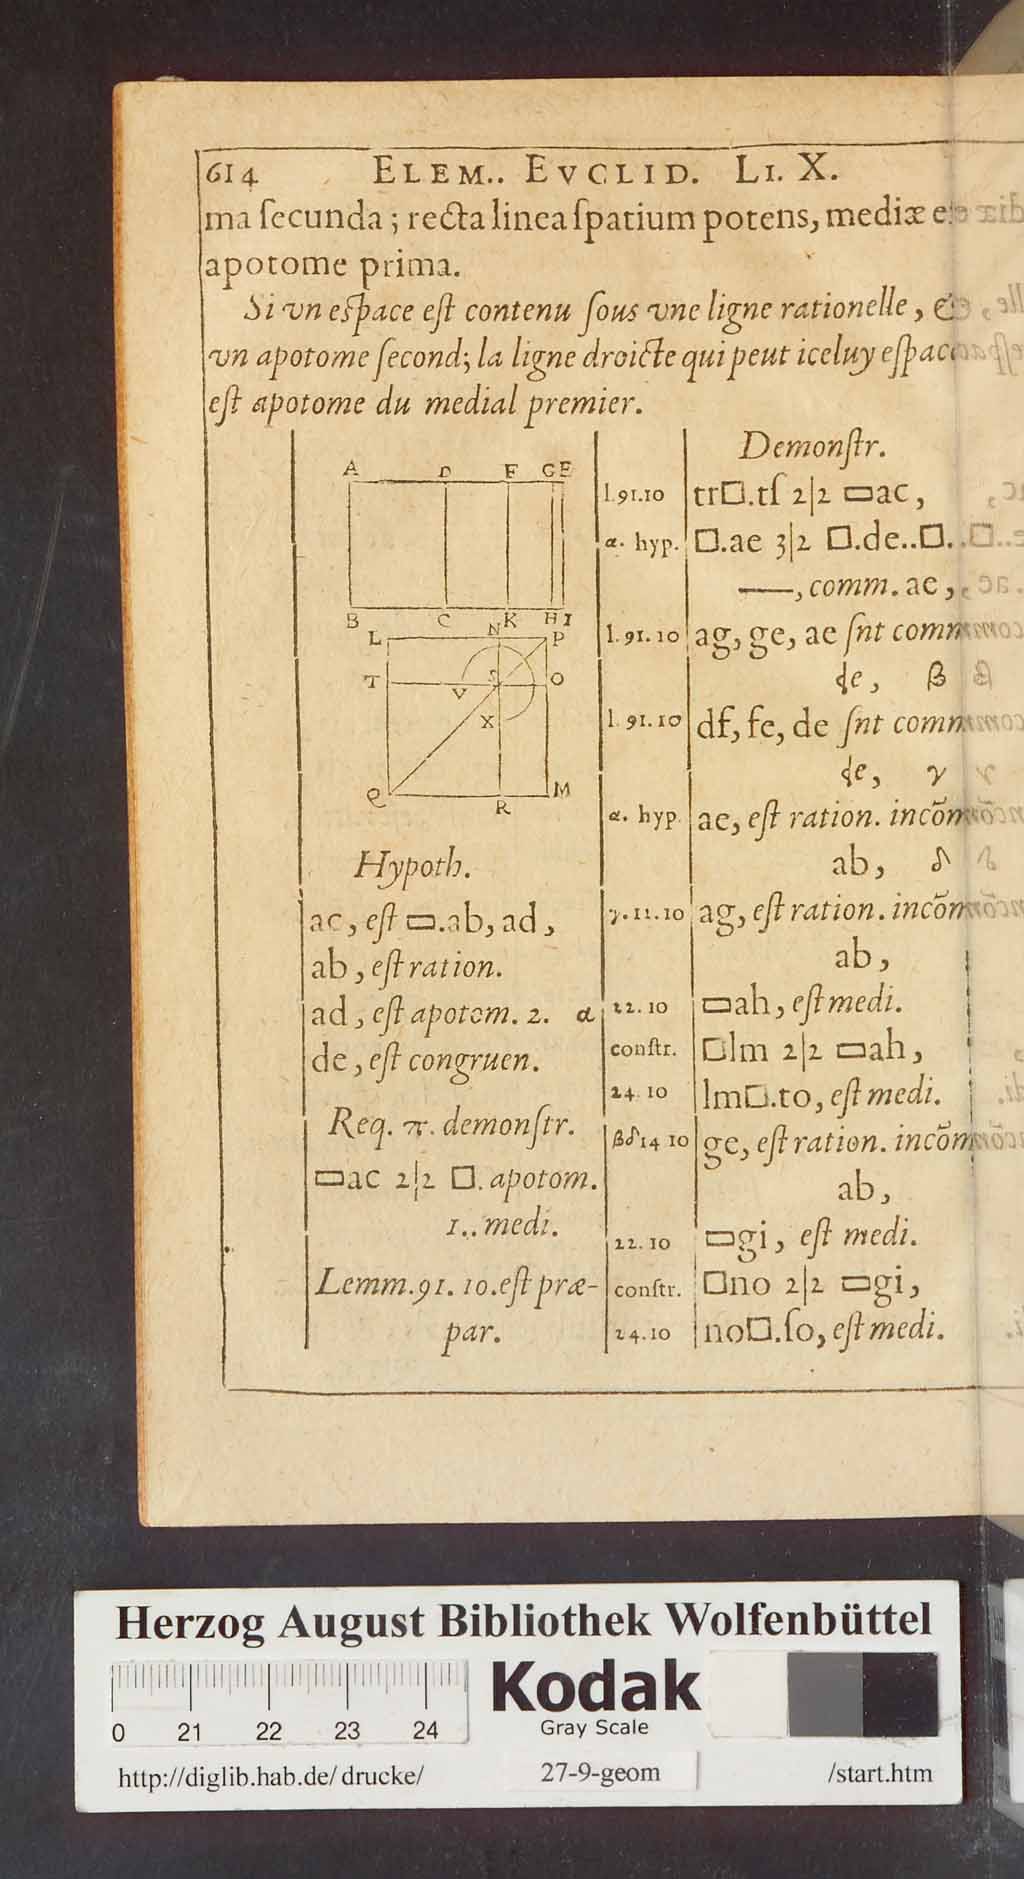 614 ELEM.. EVCLID. LI. X.
ma ſecunda; recta linea ſpatium potens, mediæ e
apotome prima.
Si vn eſpace eſt contenu ſous vne ligne rationelle, &
vn apotome ſecond; la ligne droicte qui peut iceluy eſpace
eſt apotome du medial premier.
A D F G E
B C K H I
L N P
T V S O
X
Q R M
Hypoth.
ac, eſt ▭.ab, ad,
ab, eſt ration.
ad, eſt apotom. 2. α
de, eſt congruen.
Req. π. demonſtr.
▭ac 2|2 □. apotom.
1.. medi.
Lemm. 91. 10. eſt præ-
par.
Demonſtr.
l.91.10 tr□.tſ 2|2 ▭ac,
α. hyp. □.ae 3|2 □.de..□.
——, comm. ae,
l. 91. 10 ag, ge, ae ſnt comm
de, β
l. 91. 10 df, fe, de ſnt comm
de, γ
α. hyp. ae, eſt ration. incõm
ab, δ
γ. 11. 10 ag, eſt ration. incõm
ab,
22. 10 ▭ah, eſt medi.
conſtr. □lm 2|2 ▭ah,
24. 10 lm□.to, eſt medi.
βδ 14 10 ge, eſt ration. incõm
ab,
22. 10 ▭gi, eſt medi.
conſtr. □no 2|2 ▭gi,
24. 10 no□.ſo, eſt medi.
Herzog August Bibliothek Wolfenbüttel
Kodak
Gray Scale
0 21 22 23 24
http://diglib.hab.de/drucke/ 27-9-geom /start.htm